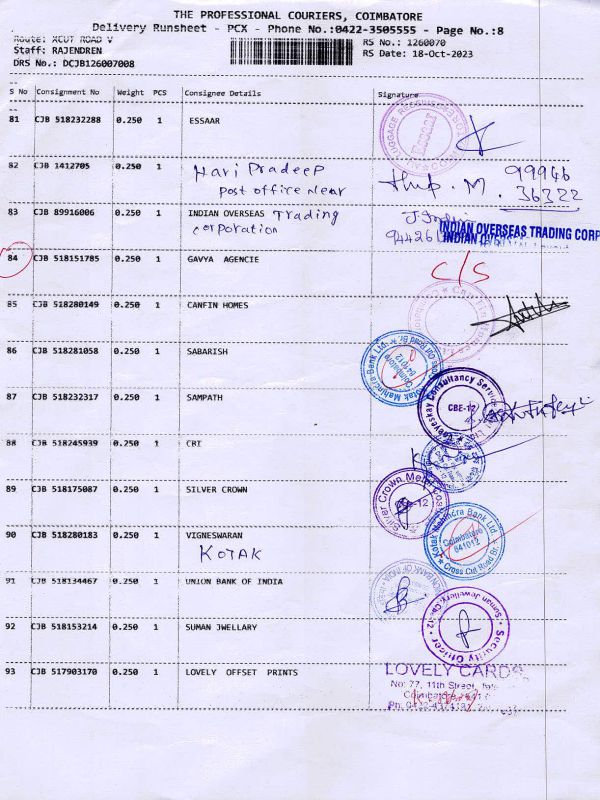 THE PROFESSIONAL COURIERS, COIMBATORE
Delivery Runsheet - PCX - Phone No.:0422-3505555 - Page No.:8
Route: XCUT ROAD V
RS No.: 1260070
Staff: RAJENDREN
RS Date: 18-Oct-2023
DRS No.: DCJB126007008
S No Consignment No Weight PCS Consignee Details Signature
81 CJB 518232288 0.250 1 ESSAAR
82 CJB 1412705 0.250 1 Hari Pradeep 99946
post office near M. 36322
83 CJB 89916006 0.250 1 INDIAN OVERSEAS Trading
corporation
INDIAN OVERSEAS TRADING CORP
84 CJB 518151785 0.250 1 GAVYA AGENCIE C/S
85 CJB 518280149 0.250 1 CANFIN HOMES
86 CJB 518281058 0.250 1 SABARISH
Kotak Mahindra Bank Ltd.
Coimbatore
641012
87 CJB 518232317 0.250 1 SAMPATH
Consultancy Service
CBE-12
88 CJB 518245939 0.250 1 CRI
89 CJB 518175087 0.250 1 SILVER CROWN
Silver Crown
90 CJB 518280183 0.250 1 VIGNESWARAN
KOTAK
Kotak Mahindra Bank Ltd.
Coimbatore
641012
Cross Cut Road Br.
91 CJB 518134467 0.250 1 UNION BANK OF INDIA
92 CJB 518153214 0.250 1 SUMAN JWELLARY
Suman Jewellery, Cbe-12
Security Officer
93 CJB 517903170 0.250 1 LOVELY OFFSET PRINTS
LOVELY CARDS
No: 77, 11th Street,